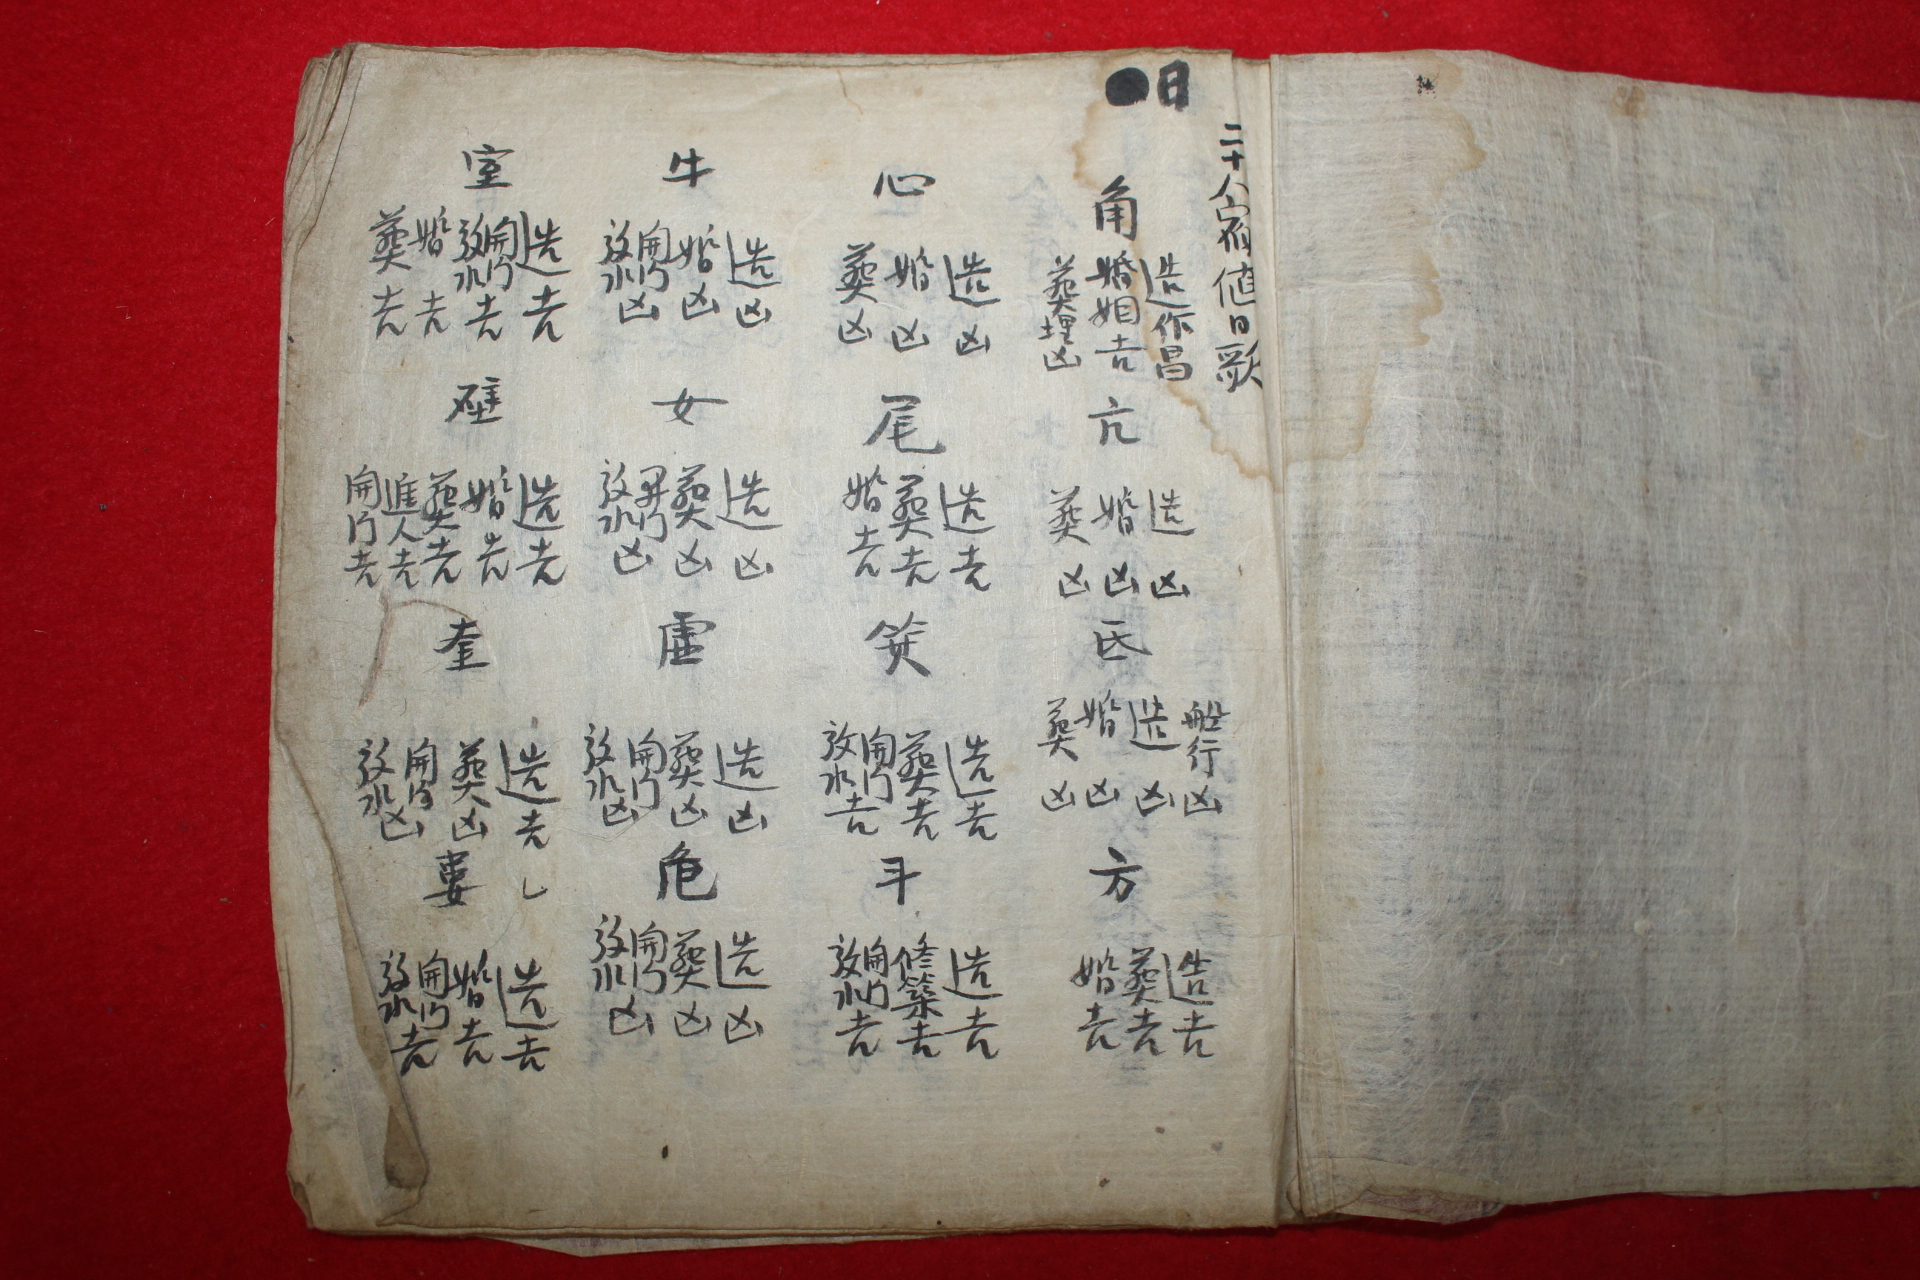 ●日
二十八宿値日歌
角
造作昌
婚姻吉
葬埋凶
亢
造凶
婚凶
葬凶
氐
船行凶
造凶
婚凶
葬凶
方
造吉
葬吉
婚吉
心
造凶
婚凶
葬凶
尾
造吉
葬吉
婚吉
箕
造吉
葬吉
開門
放水吉
斗
造吉
修築吉
開門
放水吉
牛
造凶
婚凶
開門
放水凶
女
造凶
葬凶
開門
放水凶
虛
造凶
葬凶
開門
放水凶
危
造凶
葬凶
開門
放水凶
室
造吉
開門
放水吉
婚吉
葬吉
壁
造吉
婚吉
葬吉
進人吉
開門吉
奎
造吉
葬凶
開門
放水凶
婁
造吉
婚吉
開門
放水吉